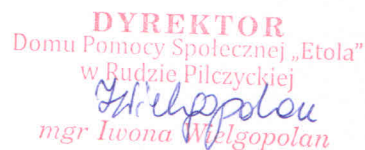 DYREKTOR
Domu Pomocy Społecznej „Etola”
w Rudzie Pilczyckiej
Wielgopolan
mgr Iwona Wielgopolan